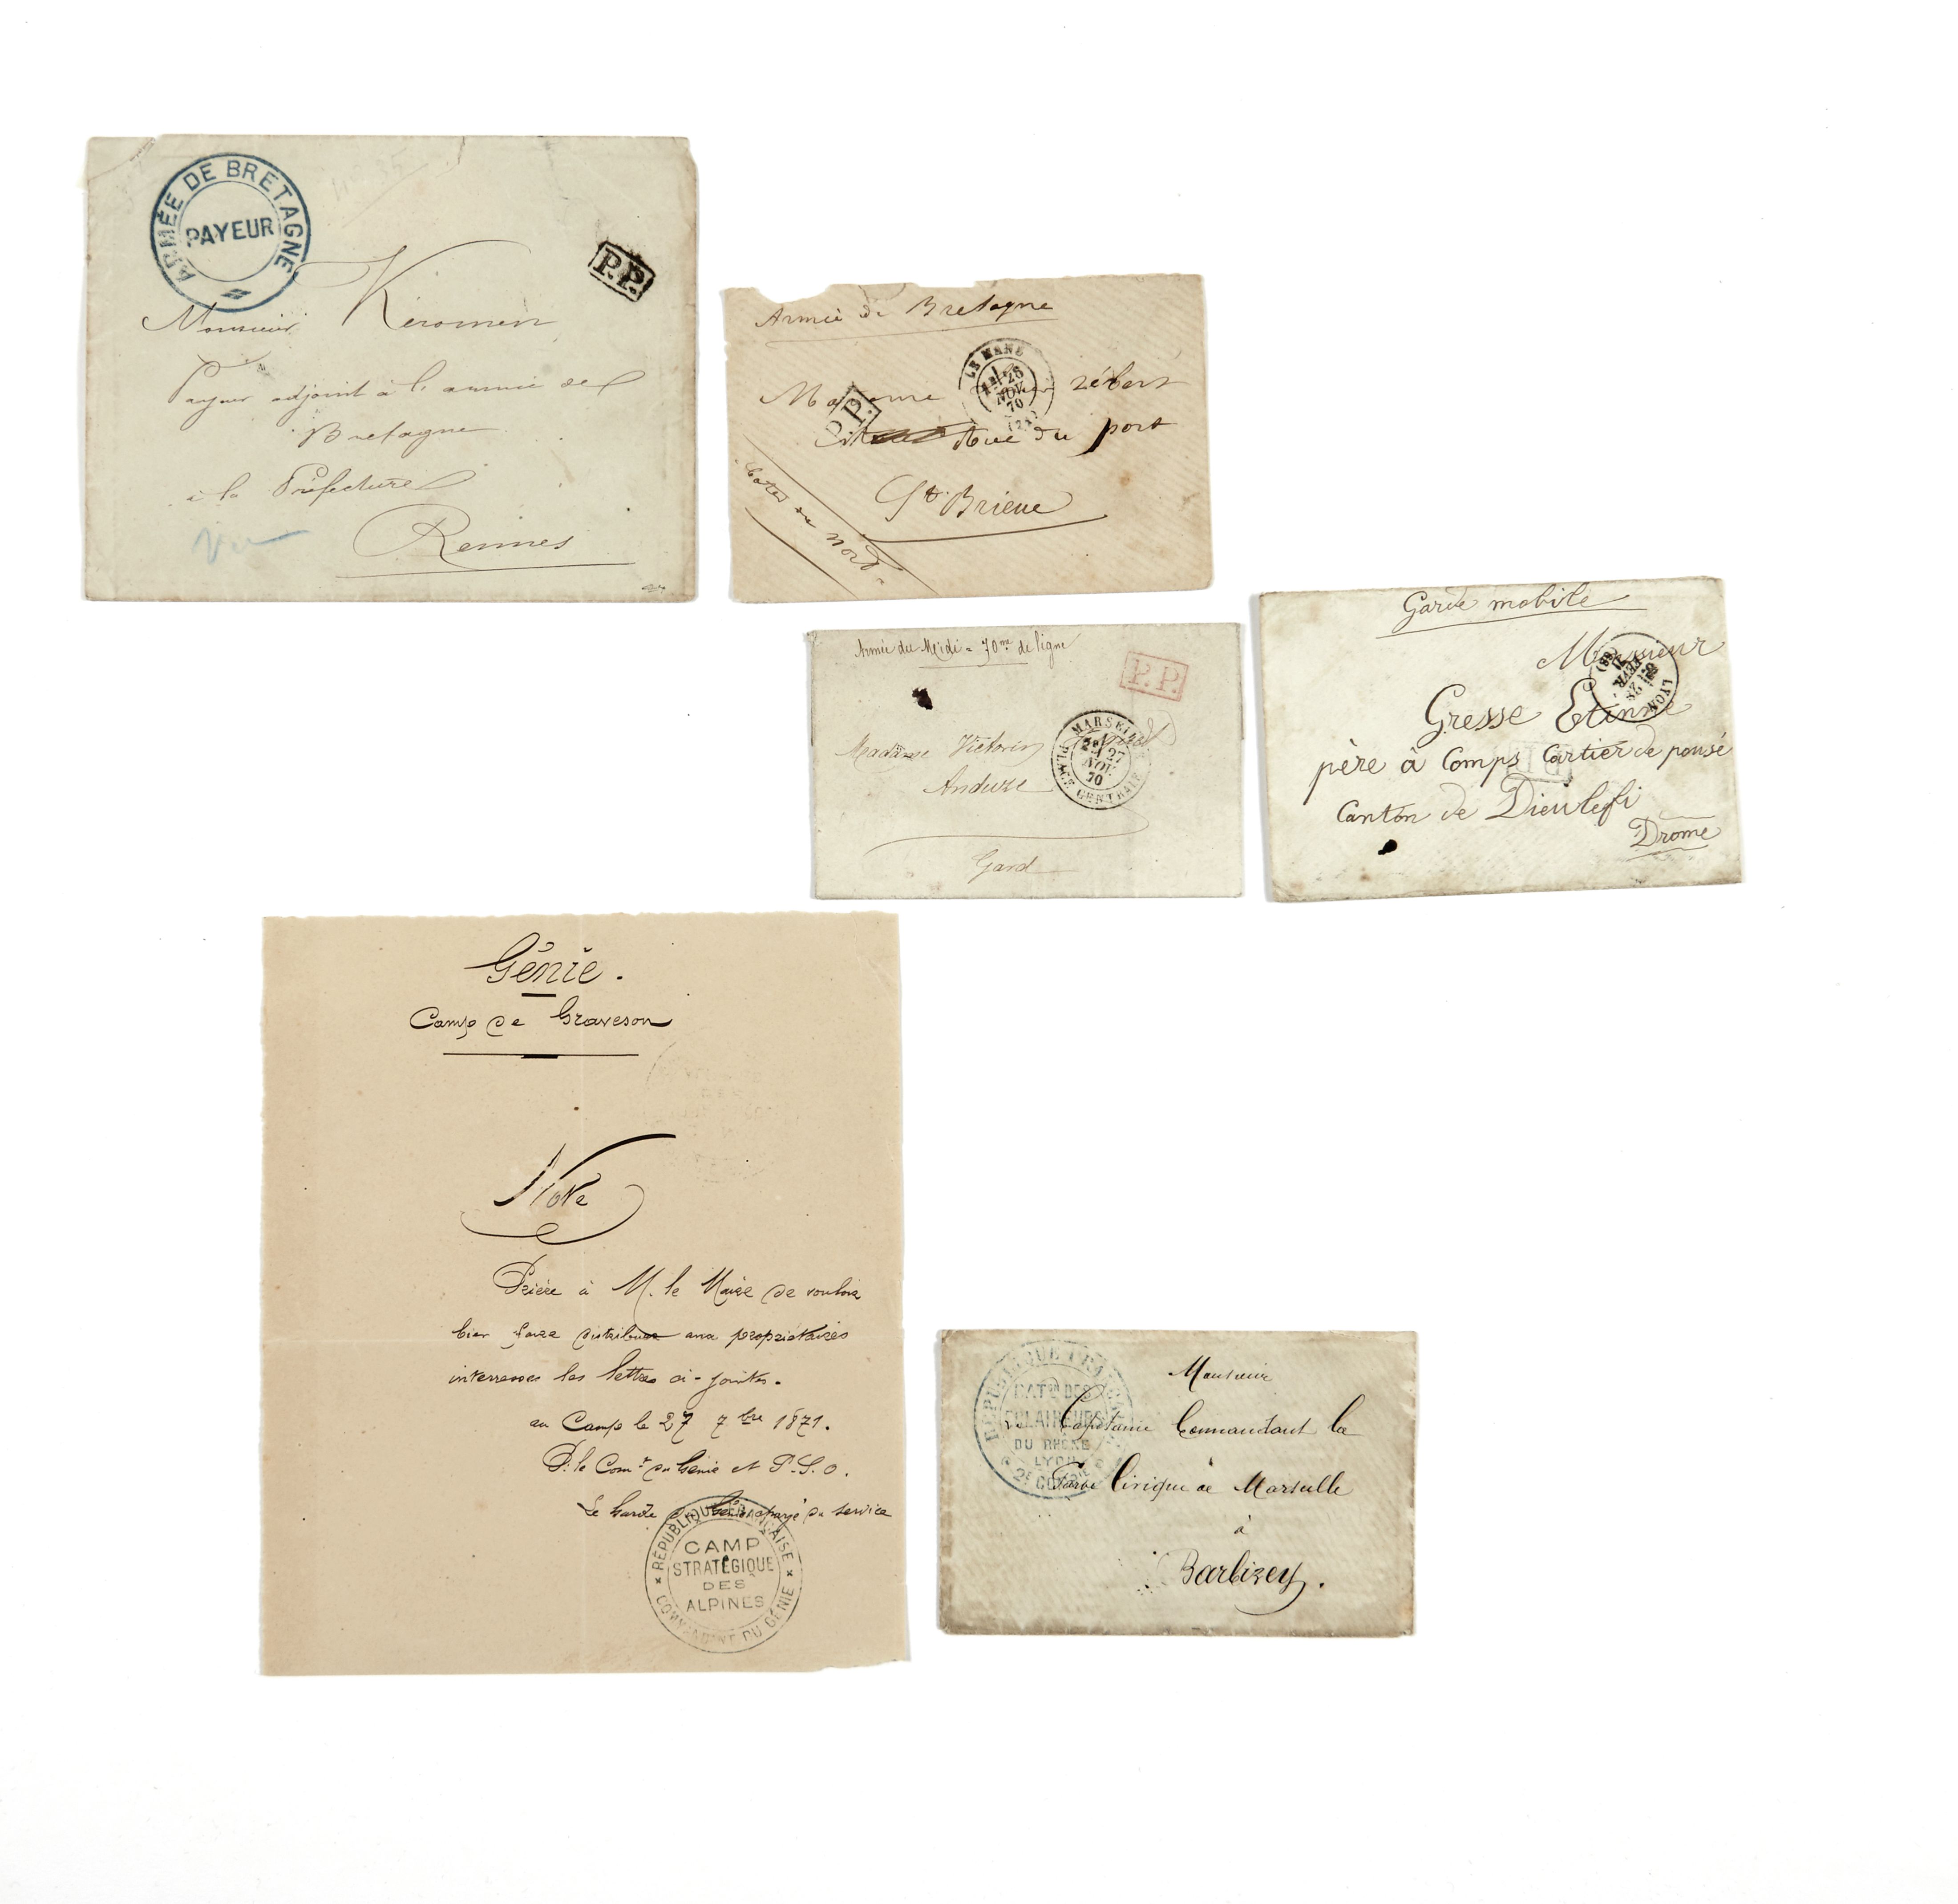 ARMÉE DE BRETAGNE
PAYEUR
P.P.
Monsieur Kéromen
Payeur adjoint à l'armée de
Bretagne
à la Préfecture
Rennes
Armée de Bretagne
LE MENE
28
NOV.
70
P.P.
rue du port
St Brieuc
Cotes du nord
Armée du Midi - 70me de ligne
P.P.
MARSEILLE
PLACE CENTRALE
27
NOV.
70
Madame Victorin
Anduze
Gard
Garde mobile
Monsieur
LYON
28
FEVR.
71
(68)
Gresse Etinne
père à Comps Cartier de pousé
Canton de Dieulefi
Drome
Génie.
Camp de Graveson
Note
Prière à M. le Maire de vouloir
bien faire distribuer aux propriétaires
interressés les lettres ci-jointes.
au Camp le 27 7bre 1871.
P. le Comt du Génie et P.S.O.
Le Garde du Génie chargé du service
RÉPUBLIQUE FRANÇAISE
CAMP
STRATÉGIQUE
DES
ALPINES
COMMANDANT DU GÉNIE
RÉPUBLIQUE FRANÇAISE
BATON DES
ECLAIREURS
DU RHÔNE
LYON
Monsieur
Le Capitaine Commandant la
Garde Civique de Marseille
à
Barbizey.